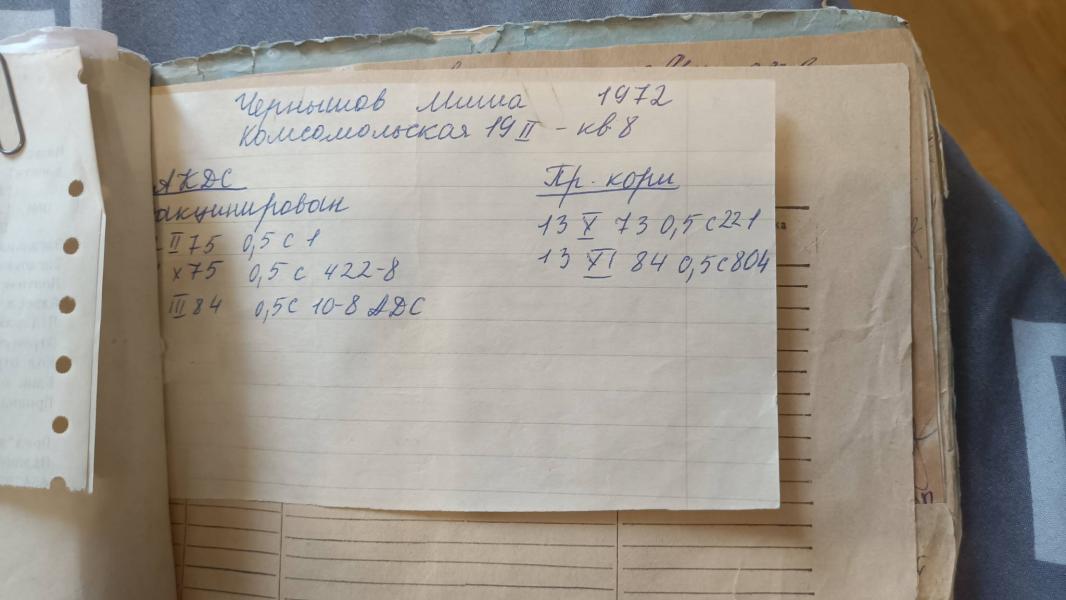 Чернышов Миша 1972
Комсомольская 19 II - кв 8
АКДС
акцинирован
II 75 0,5 с 1
x 75 0,5 с 422-8
III 84 0,5 с 10-8 АДС
Пр. кори
13 X 73 0,5 с 221
13 XI 84 0,5 с 804